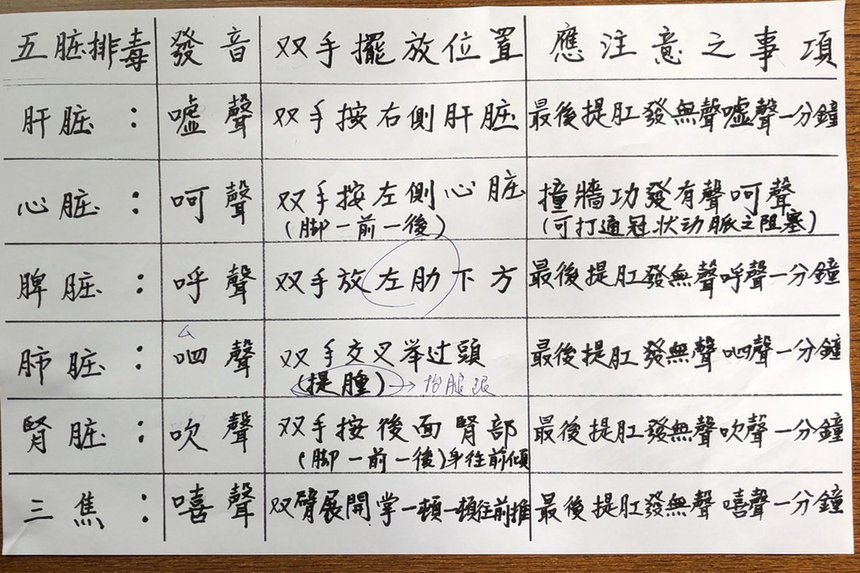 五脏排毒 發音 双手擺放位置 應注意之事項
肝脏： 噓聲 双手按右側肝脏 最後提肛發無聲噓聲一分鐘
心脏： 呵聲 双手按左側心脏 撞牆功發有聲呵聲
(脚一前一後) (可打通冠状动脈之阻塞)
脾脏： 呼聲 双手放左肋下方 最後提肛發無聲呼聲一分鐘
ㄙ
肺脏： 呬聲 双手交叉举过頭 最後提肛發無聲呬聲一分鐘
(提腫)→抬脚跟
腎脏： 吹聲 双手按後面腎部 最後提肛發無聲吹聲一分鐘
(脚一前一後)身往前傾
三焦： 嘻聲 双臂展開掌一頓一頓往前推 最後提肛發無聲嘻聲一分鐘